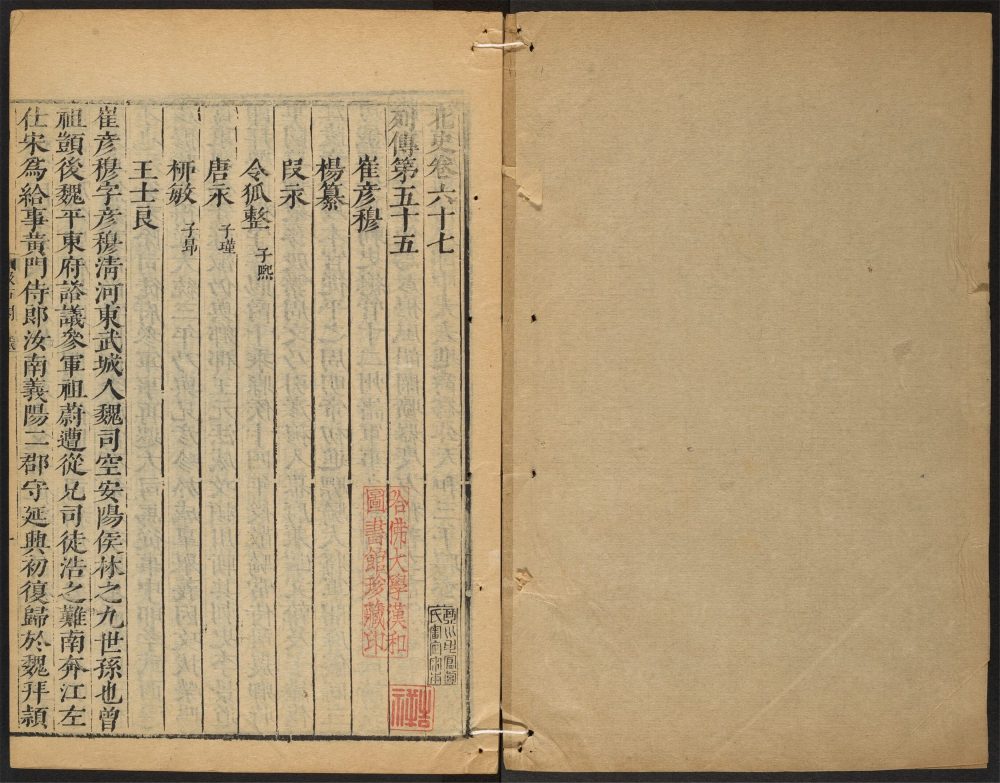 北史卷六十七
列傳第五十五
崔彥穆
楊纂
段永
令狐整 子熙
唐永 子瑾
桞敏 子昻
王士良
崔彥穆字彥穆淸河東武城人魏司空安陽侯林之九世孫也曾
祖顗後魏平東府諮議參軍祖蔚遭從兄司徒浩之難南奔江左
仕宋爲給事黃門侍郎汝南義陽二郡守延興初復歸於魏拜潁
哈佛大學漢和
圖書館珍藏印